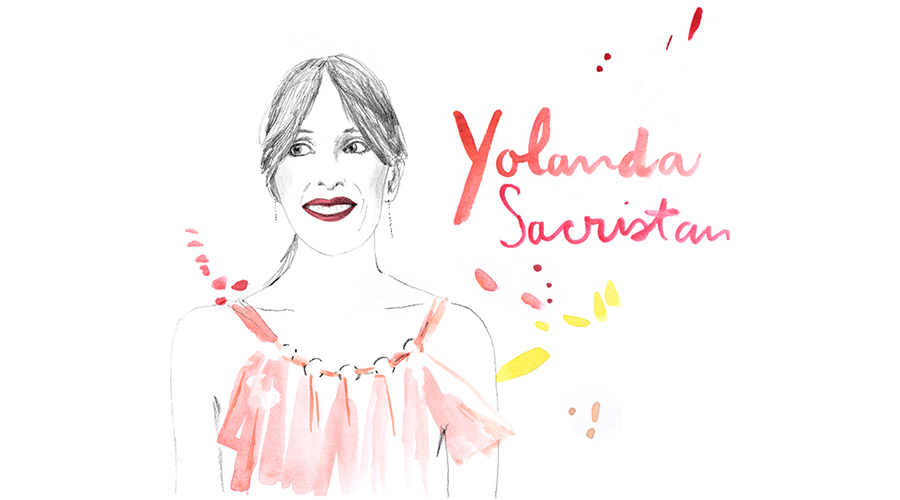 Yolanda
Sacristan